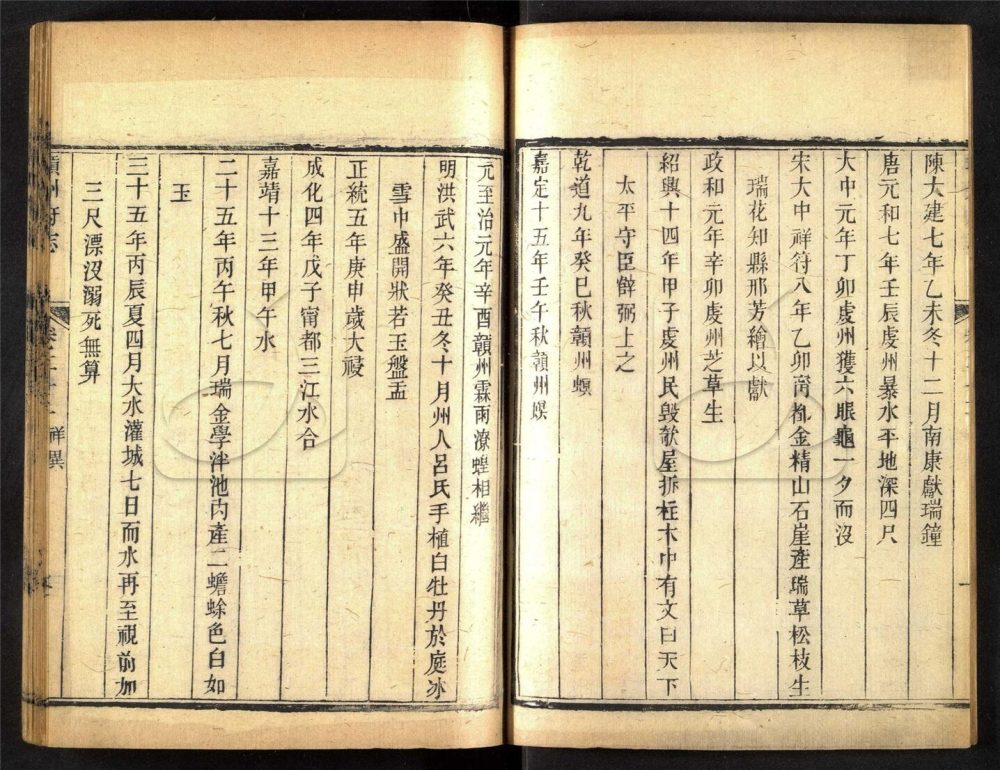 陳大建七年乙未冬十二月南康獻瑞鐘
唐元和七年壬辰虔州暴水平地深四尺
大中元年丁卯虔州獲六眼龜一夕而沒
宋大中祥符八年乙卯甯都金精山石崖產瑞草松枝生
瑞花知縣邢芳繪以獻
政和元年辛卯虔州芝草生
紹興十四年甲子虔州民毀欹屋拆柱木中有文曰天下
太平守臣薛弼上之
乾道九年癸巳秋贛州螟
嘉定十五年壬午秋贛州螟
元至治元年辛酉贛州霖雨潦蝗相繼
明洪武六年癸丑冬十月州人呂氏手植白牡丹於庭冰
雪中盛開狀若玉盤盂
正統五年庚申歲大祲
成化四年戊子甯都三江水合
嘉靖十三年甲午水
二十五年丙午秋七月瑞金學泮池內產二蟾蜍色白如
玉
三十五年丙辰夏四月大水灌城七日而水再至視前加
三尺漂沒溺死無算
贛州府志 卷二十二 祥異